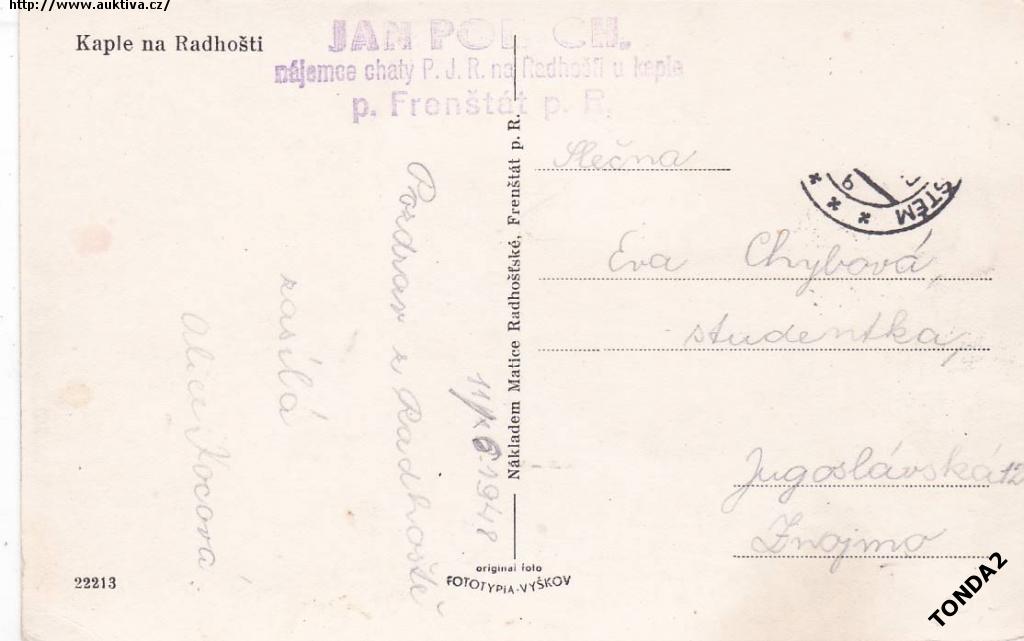 http://www.auktiva.cz/
Kaple na Radhošti
JAN POL CH.
nájemce chaty P. J. R. na Radhošti u kaple
p. Frenštát p. R.
Pozdrav z Radhoště
zasílá
Alice Kocová.
Nákladem Matice Radhošťské, Frenštát p. R.
Slečna
Eva Chybová,
studentka,
Jugoslávská 12
Znojmo
ŠTĚM
22213
original foto
FOTOTYPIA-VYŠKOV
TONDA2